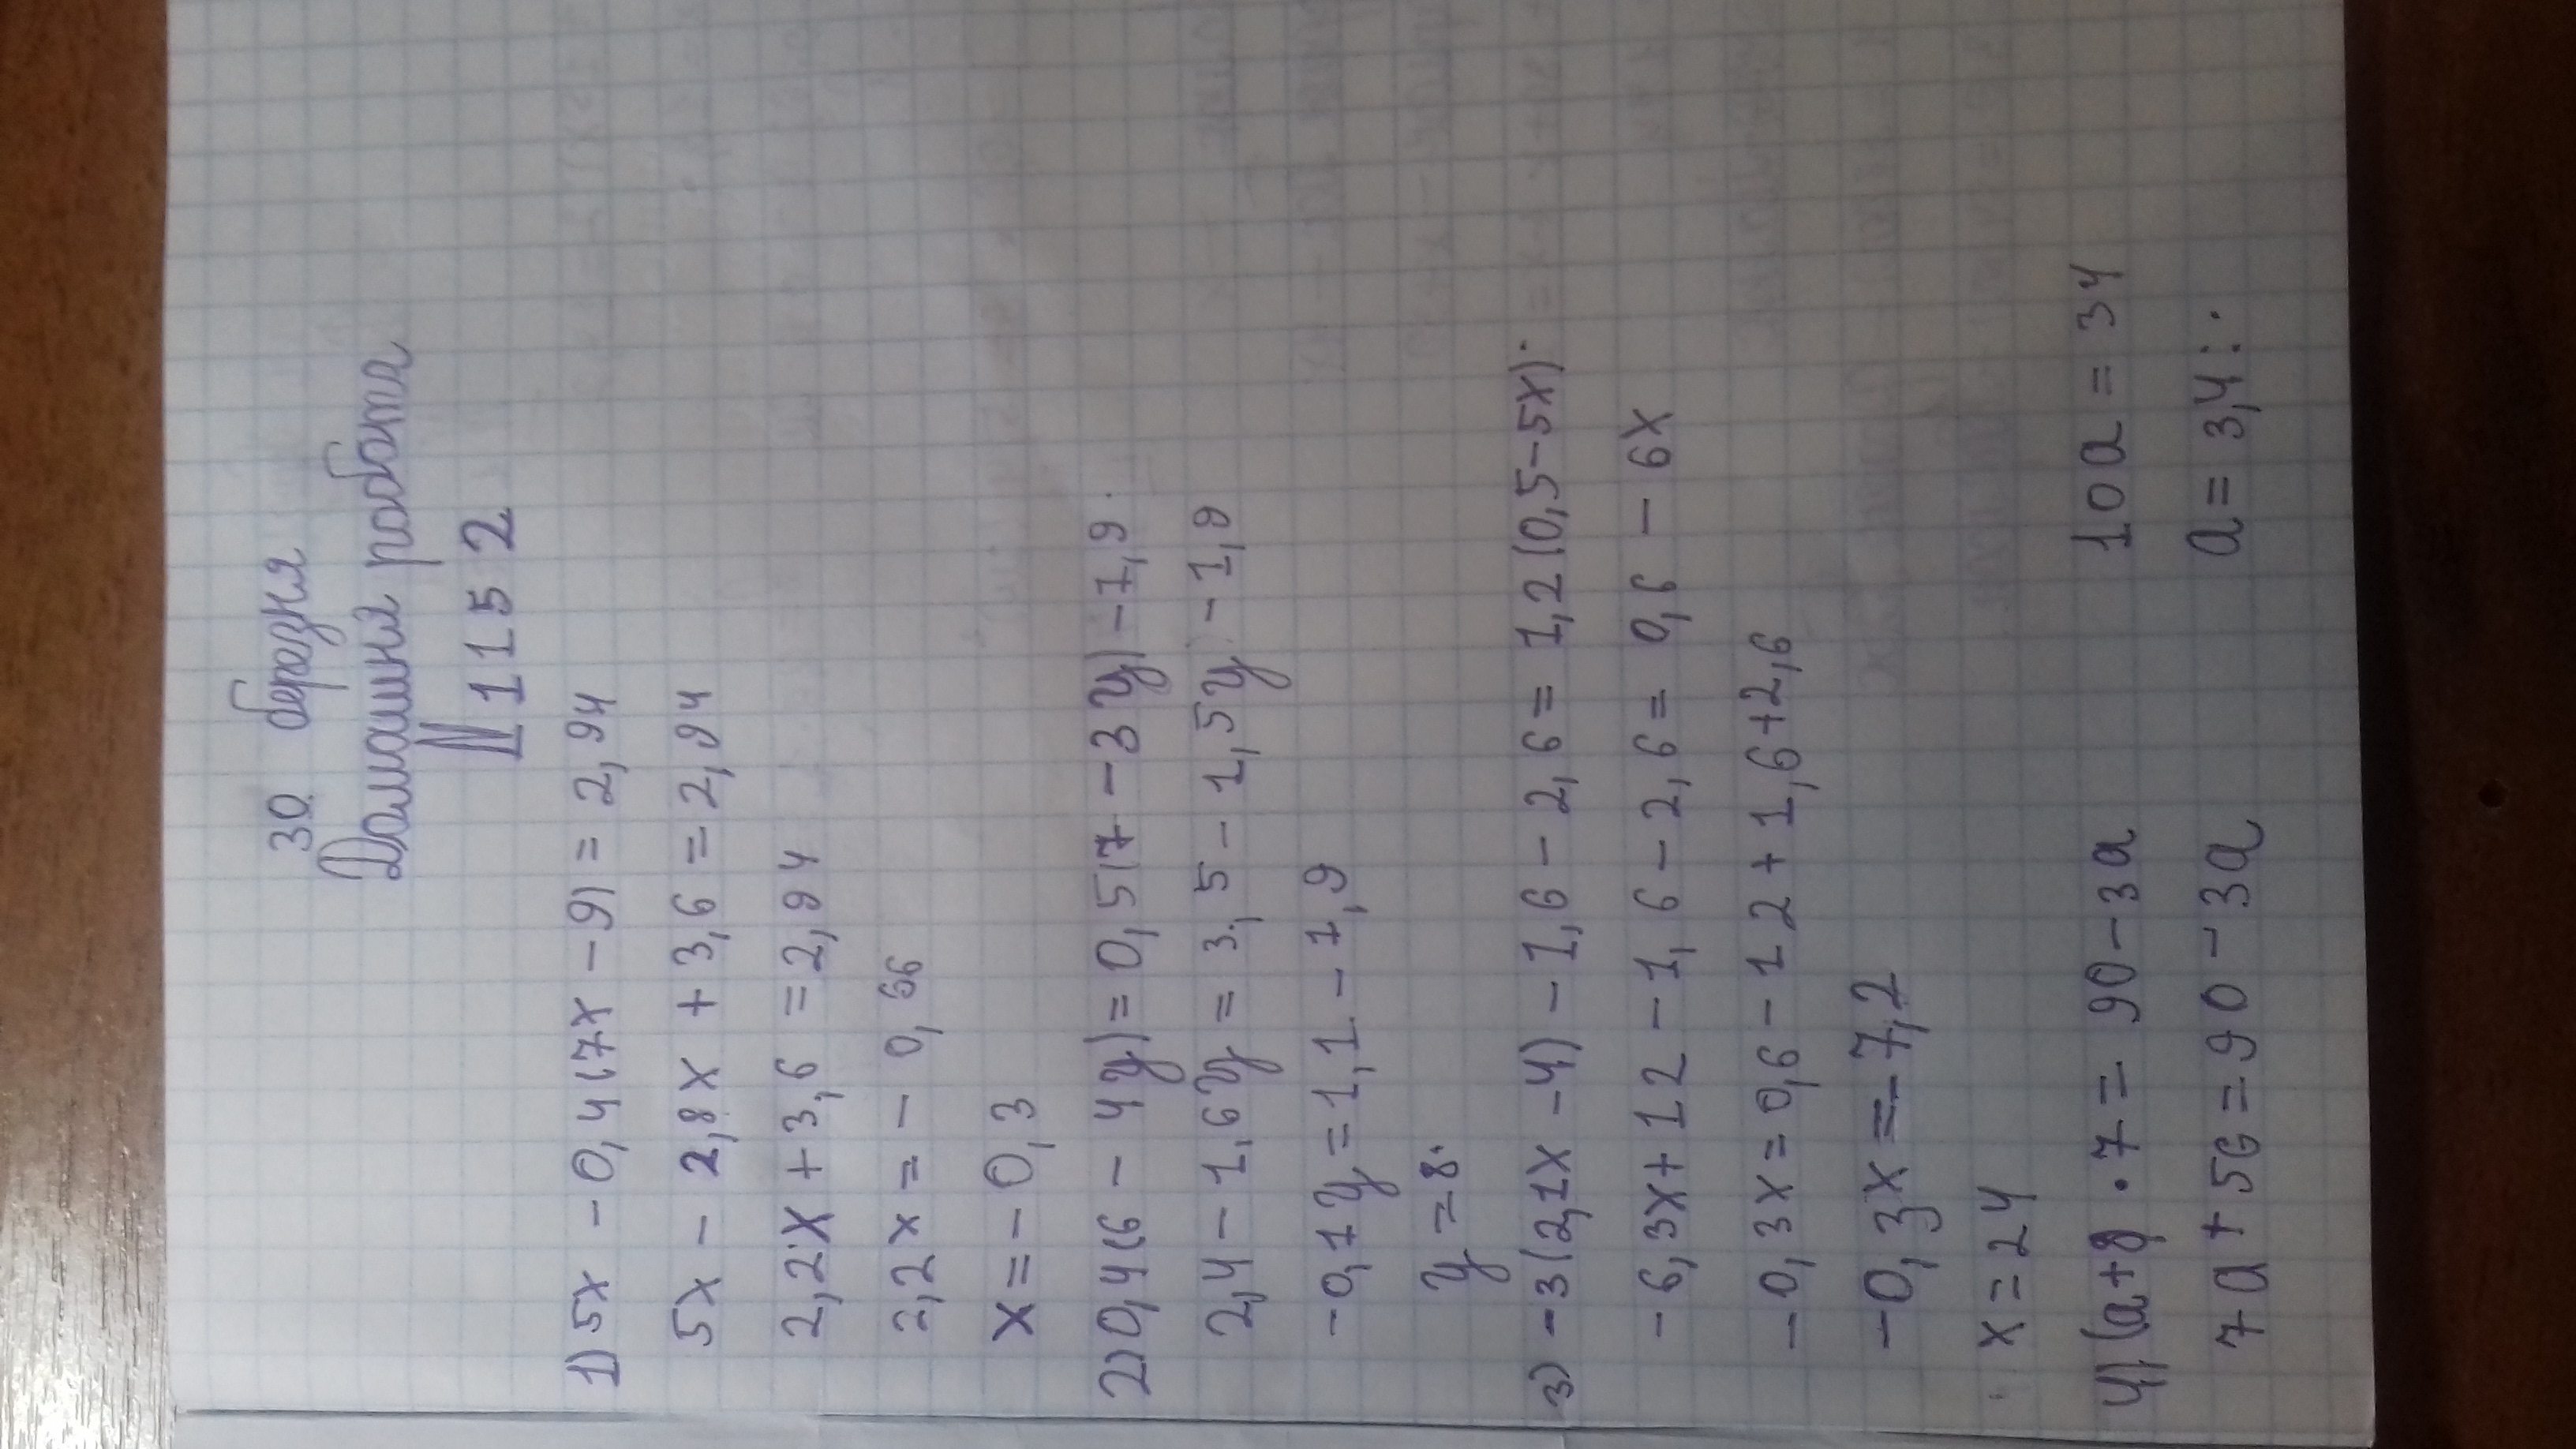 30 березня
Домашня робота
N 1152
1) 5x - 0,4(7x - 9) = 2,94
5x - 2,8x + 3,6 = 2,94
2,2x + 3,6 = 2,94
2,2x = - 0,66
x = - 0,3
2) 0,4(6 - 4y) = 0,5(7 - 3y) - 1,9.
2,4 - 1,6y = 3,5 - 1,5y - 1,9
-0,1y = 1,1 - 1,9
y = 8.
3) -3(2,1x - 4) - 1,6 - 2,6 = 1,2(0,5 - 5x).
-6,3x + 12 - 1,6 - 2,6 = 0,6 - 6x
-0,3x = 0,6 - 12 + 1,6 + 2,6
-0,3x = -7,2
x = 24
4) (a+8) · 7 = 90 - 3a 10a = 34
7a + 56 = 90 - 3a a = 3,4:.